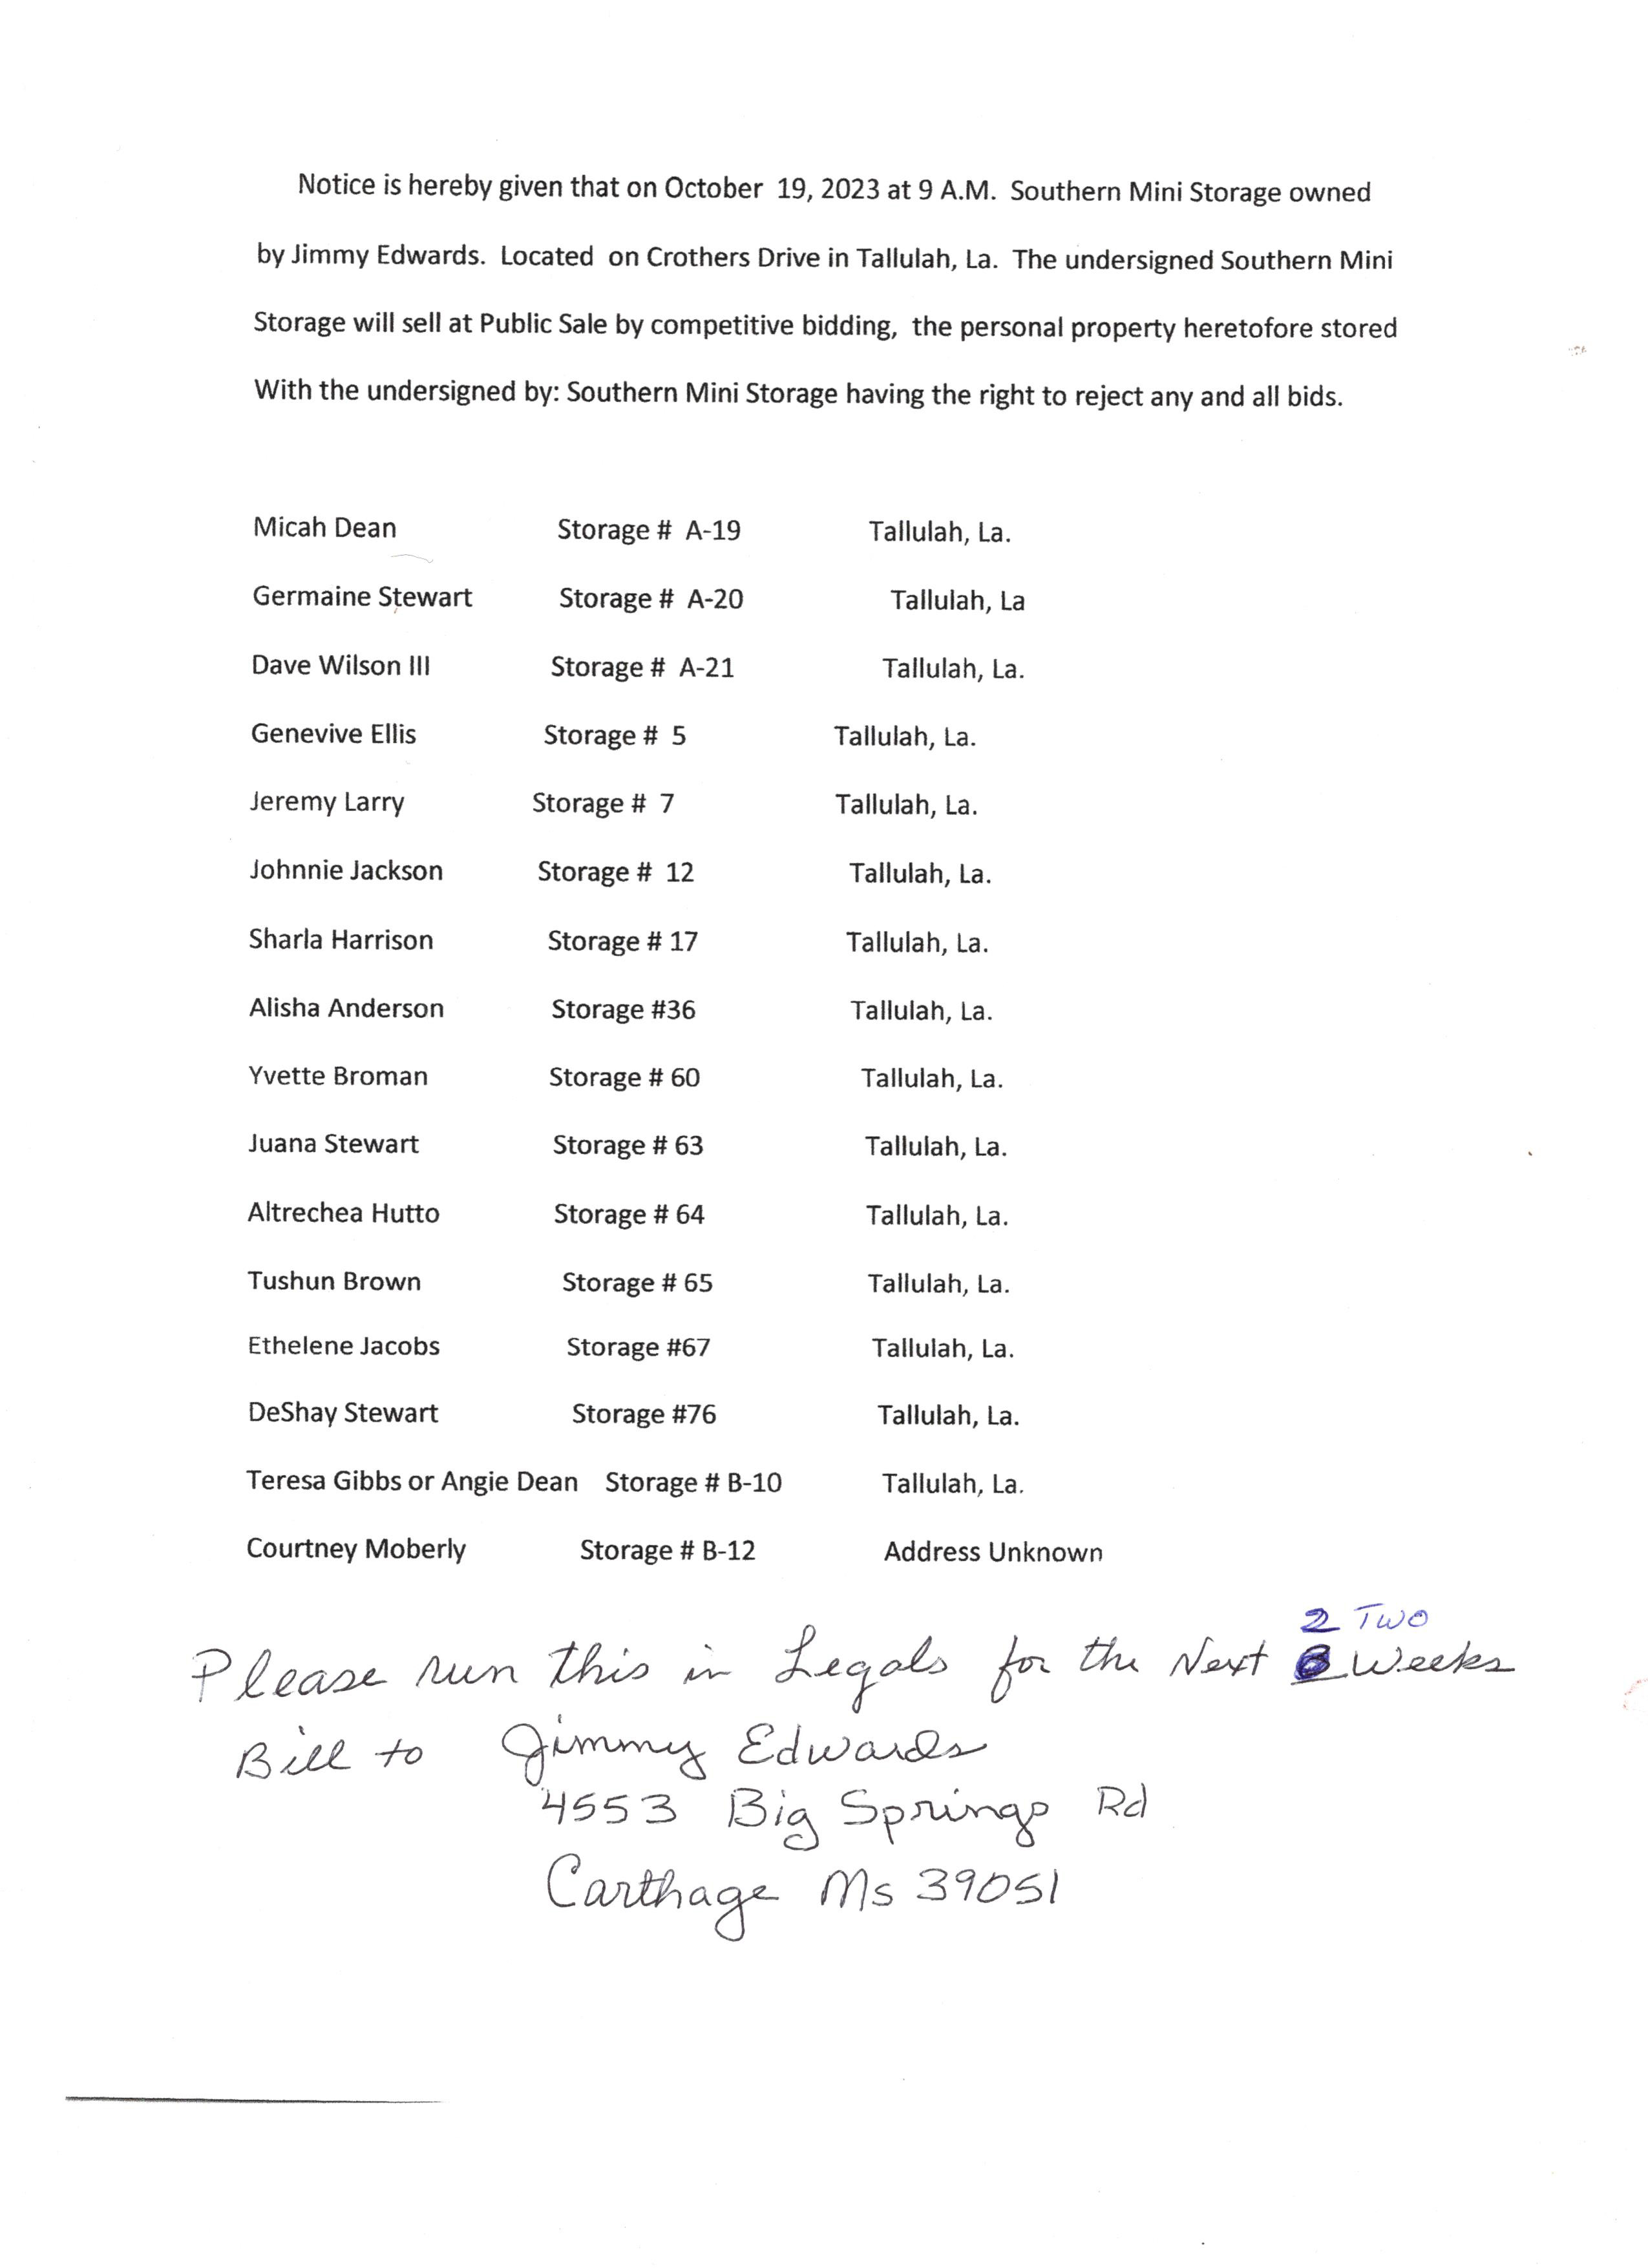 Notice is hereby given that on October 19, 2023 at 9 A.M. Southern Mini Storage owned
by Jimmy Edwards. Located on Crothers Drive in Tallulah, La. The undersigned Southern Mini
Storage will sell at Public Sale by competitive bidding, the personal property heretofore stored
With the undersigned by: Southern Mini Storage having the right to reject any and all bids.
Micah Dean Storage # A-19 Tallulah, La.
Germaine Stewart Storage # A-20 Tallulah, La
Dave Wilson III Storage # A-21 Tallulah, La.
Genevive Ellis Storage # 5 Tallulah, La.
Jeremy Larry Storage # 7 Tallulah, La.
Johnnie Jackson Storage # 12 Tallulah, La.
Sharla Harrison Storage # 17 Tallulah, La.
Alisha Anderson Storage #36 Tallulah, La.
Yvette Broman Storage # 60 Tallulah, La.
Juana Stewart Storage # 63 Tallulah, La.
Altrechea Hutto Storage # 64 Tallulah, La.
Tushun Brown Storage # 65 Tallulah, La.
Ethelene Jacobs Storage #67 Tallulah, La.
DeShay Stewart Storage #76 Tallulah, La.
Teresa Gibbs or Angie Dean Storage # B-10 Tallulah, La.
Courtney Moberly Storage # B-12 Address Unknown
2 Two
Please run this in Legals for the Next Weeks
Bill to Jimmy Edwards
4553 Big Springs Rd
Carthage Ms 39051